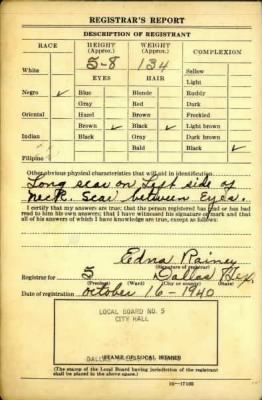 REGISTRAR'S REPORT
DESCRIPTION OF REGISTRANT
RACE HEIGHT (Approx.) WEIGHT (Approx.) COMPLEXION
5-8 134
White EYES HAIR Sallow
Light
Negro ✓ Blue Blonde Ruddy
Gray Red Dark
Oriental Hazel Brown Freckled
Brown ✓ Black ✓ Light brown
Indian Black Gray Dark brown
Bald Black ✓
Filipino
Other obvious physical characteristics that will aid in identification
Long scar on Left side of
neck. Scar between Eyes.
I certify that my answers are true; that the person registered has read or has had
read to him his own answers; that I have witnessed his signature or mark and that
all of his answers of which I have knowledge are true, except as follows:
Edna Rainey
(Signature of registrar)
Registrar for 5 Dallas Tex.
(Precinct) (Ward) (City or county) (State)
Date of registration October 16-1940
LOCAL BOARD NO. 5
CITY HALL
DALLAS
STAMP OF LOCAL BOARD
(The stamp of the Local Board having jurisdiction of the registrant
shall be placed in the above space.)